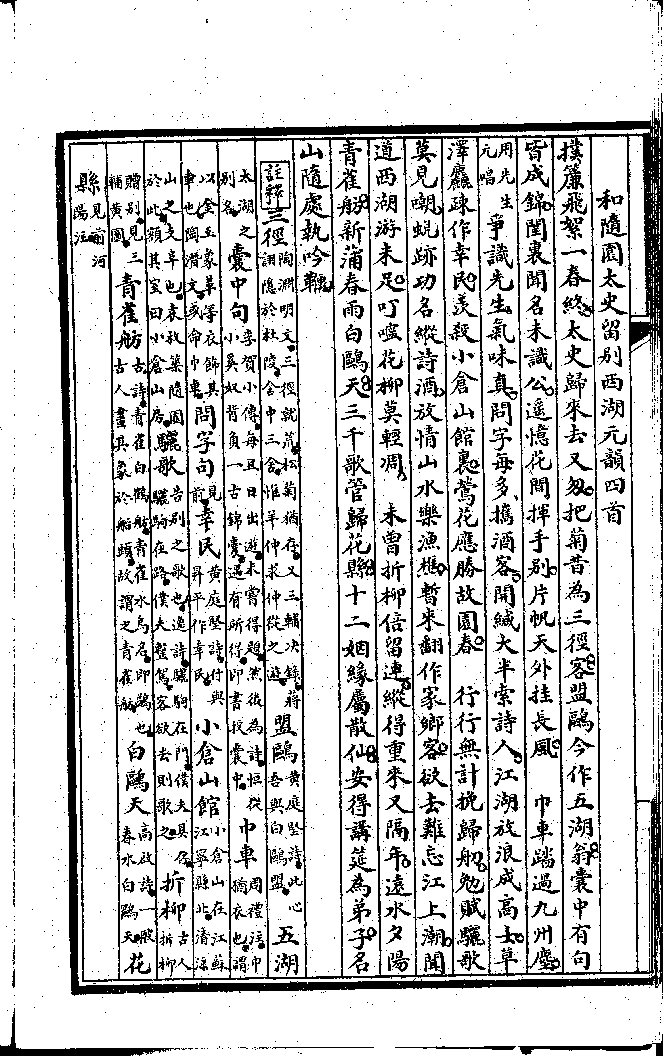 和隨園太史留别西湖元韻四首
撲簾飛絮一春終太史歸來去又怱把菊昔為三徑客盟鷗今作五湖翁囊中有句
皆成錦閨裏聞名未識公遥憶花間揮手别片帆天外挂長風　巾車踏過九州塵
用先生元唱爭識先生氣味真問字每多攜酒客開緘大半索詩人江湖放浪成高士草
澤麤疎作幸民羡殺小倉山館裏鶯花應勝故園春　行行無計挽歸船勉賦驪歌
莫見嘲蜕跡功名縱詩酒放情山水樂漁樵暫來翻作家鄉客欲去難忘江上潮聞
道西湖游未足叮嚀花柳莫輕凋　未曾折柳倍留連縱得重來又隔年遠水夕陽
青雀舫新蒲春雨白鷗天三千歌管歸花縣十二姻緣屬散仙安得講筵為弟子名
山隨處執吟鞭
註釋三徑陶淵明文三徑就荒松菊猶存又三輔决錄蔣詡隱於杜陵舍中三徑惟羊仲求仲從之遊盟鷗黄庭堅詩此心吾與白鷗盟五湖
太湖之别名囊中句李賀小傳每旦日出遊未嘗得題然後為詩恒從小奚奴背負一古錦囊遇有所得即書投囊中巾車周禮注巾猶衣也謂
以金玉象革等衣飾其車也陶潜文或命巾車問字句見前幸民黄庭堅詩付與昇平作幸民小倉山館小倉山在江蘇江寧縣北清凉
山之支阜也袁枚築隨園於此額其室曰小倉山房驪歌告别之歌也逸詩驪駒在門僕夫具存驪駒在路僕夫整駕客欲去則歌之折柳古人折柳
贈别見三輔黄圖青雀舫古詩青雀白鵠舫青雀水鳥名即鷁也古人畫其象於船頭故謂之青雀舫白鷗天高啟詩一般春水白鷗天花
縣見前河陽注